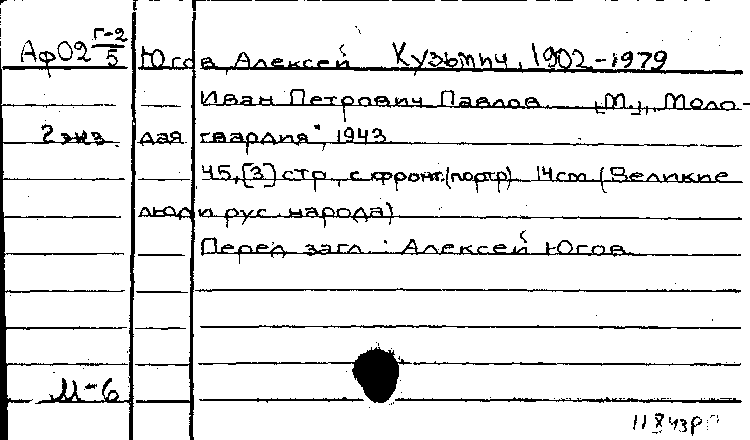 АфО2 Г-2/5 Югов, Алексей Кузьмич, 1902-1979
Иван Петрович Павлов [М.], Моло-
2 экз. дая гвардия", 1943
45,[3] стр., с фронт.(портр) 14см (Великие
люди рус. народа)
Перед загл.: Алексей Югов
М-6